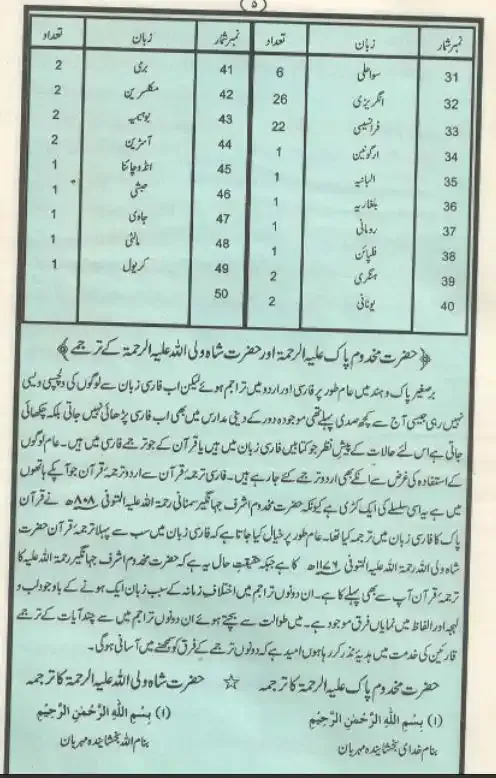 (۵)
نمبر شمار زبان تعداد نمبر شمار زبان تعداد
31 سواحلی 6 41 بری 2
32 انگریزی 26 42 مکسرین 2
33 فرانسیسی 22 43 بوہیمیہ 2
34 ارگونین 1 44 آسٹرین 2
35 البانیہ 1 45 انڈوچائنا 1
36 بلغاریہ 1 46 حبشی 1
37 رومانی 1 47 جاوی 1
38 فلپائن 1 48 مالٹی 1
39 ہنگری 2 49 کریول 1
40 یونانی 2 50
﴿حضرت مخدوم پاک علیہ الرحمۃ اور حضرت شاہ ولی اللہ علیہ الرحمۃ کے ترجمے﴾
برصغیر پاک و ہند میں عام طور پر فارسی اور اردو میں تراجم ہوئے لیکن اب فارسی زبان سے لوگوں کی دلچسپی ویسی
نہیں رہی جیسی آج سے کچھ صدی پہلے تھی موجودہ دور کے دینی مدارس میں بھی اب فارسی پڑھائی نہیں جاتی بلکہ چکھائی
جاتی ہے اس لئے حالات کے پیش نظر جو کتابیں فارسی زبان میں ہیں یا قرآن کے جو ترجمے فارسی میں ہیں۔ عام لوگوں
کے استفادہ کی غرض سے انکے بھی اردو ترجمے کئے جا رہے ہیں۔ فارسی ترجمۂ قرآن سے اردو ترجمۂ قرآن جو آپکے ہاتھوں
میں ہے یہ اسی سلسلے کی ایک کڑی ہے کیونکہ حضرت مخدوم اشرف جہانگیر سمنانی رحمۃ اللہ علیہ المتوفی ۸۰۸ھ نے قرآن
پاک کا فارسی زبان میں ترجمہ کیا تھا۔ عام طور پر خیال کیا جاتا ہے کہ فارسی زبان میں سب سے پہلا ترجمۂ قرآن حضرت
شاہ ولی اللہ رحمۃ اللہ علیہ المتوفی ۱۱۷۶ھ کا ہے جبکہ حقیقتِ حال یہ ہے کہ حضرت مخدوم اشرف جہانگیر رحمۃ اللہ علیہ کا
ترجمۂ قرآن آپ سے بھی پہلے کا ہے۔ ان دونوں تراجم میں اختلافِ زمانہ کے سبب زبان ایک ہونے کے باوجود لب و
لہجہ اور الفاظ میں نمایاں فرق موجود ہے۔ میں طوالت سے بچتے ہوئے ان دونوں تراجم میں سے چند آیات کے ترجمے
قارئین کی خدمت میں ہدیۂ نذر کر رہا ہوں امید ہے کہ دونوں ترجمے کے فرق کو سمجھنے میں آسانی ہوگی۔
حضرت مخدوم پاک علیہ الرحمۃ کا ترجمہ ☆ حضرت شاہ ولی اللہ علیہ الرحمۃ کا ترجمہ
(۱) بِسْمِ اللهِ الرَّحْمٰنِ الرَّحِيْمِ (۱) بِسْمِ اللهِ الرَّحْمٰنِ الرَّحِيْمِ
بنام خدای بخشایندہ مہربان بنام اللہ بخشایندہ مہربان